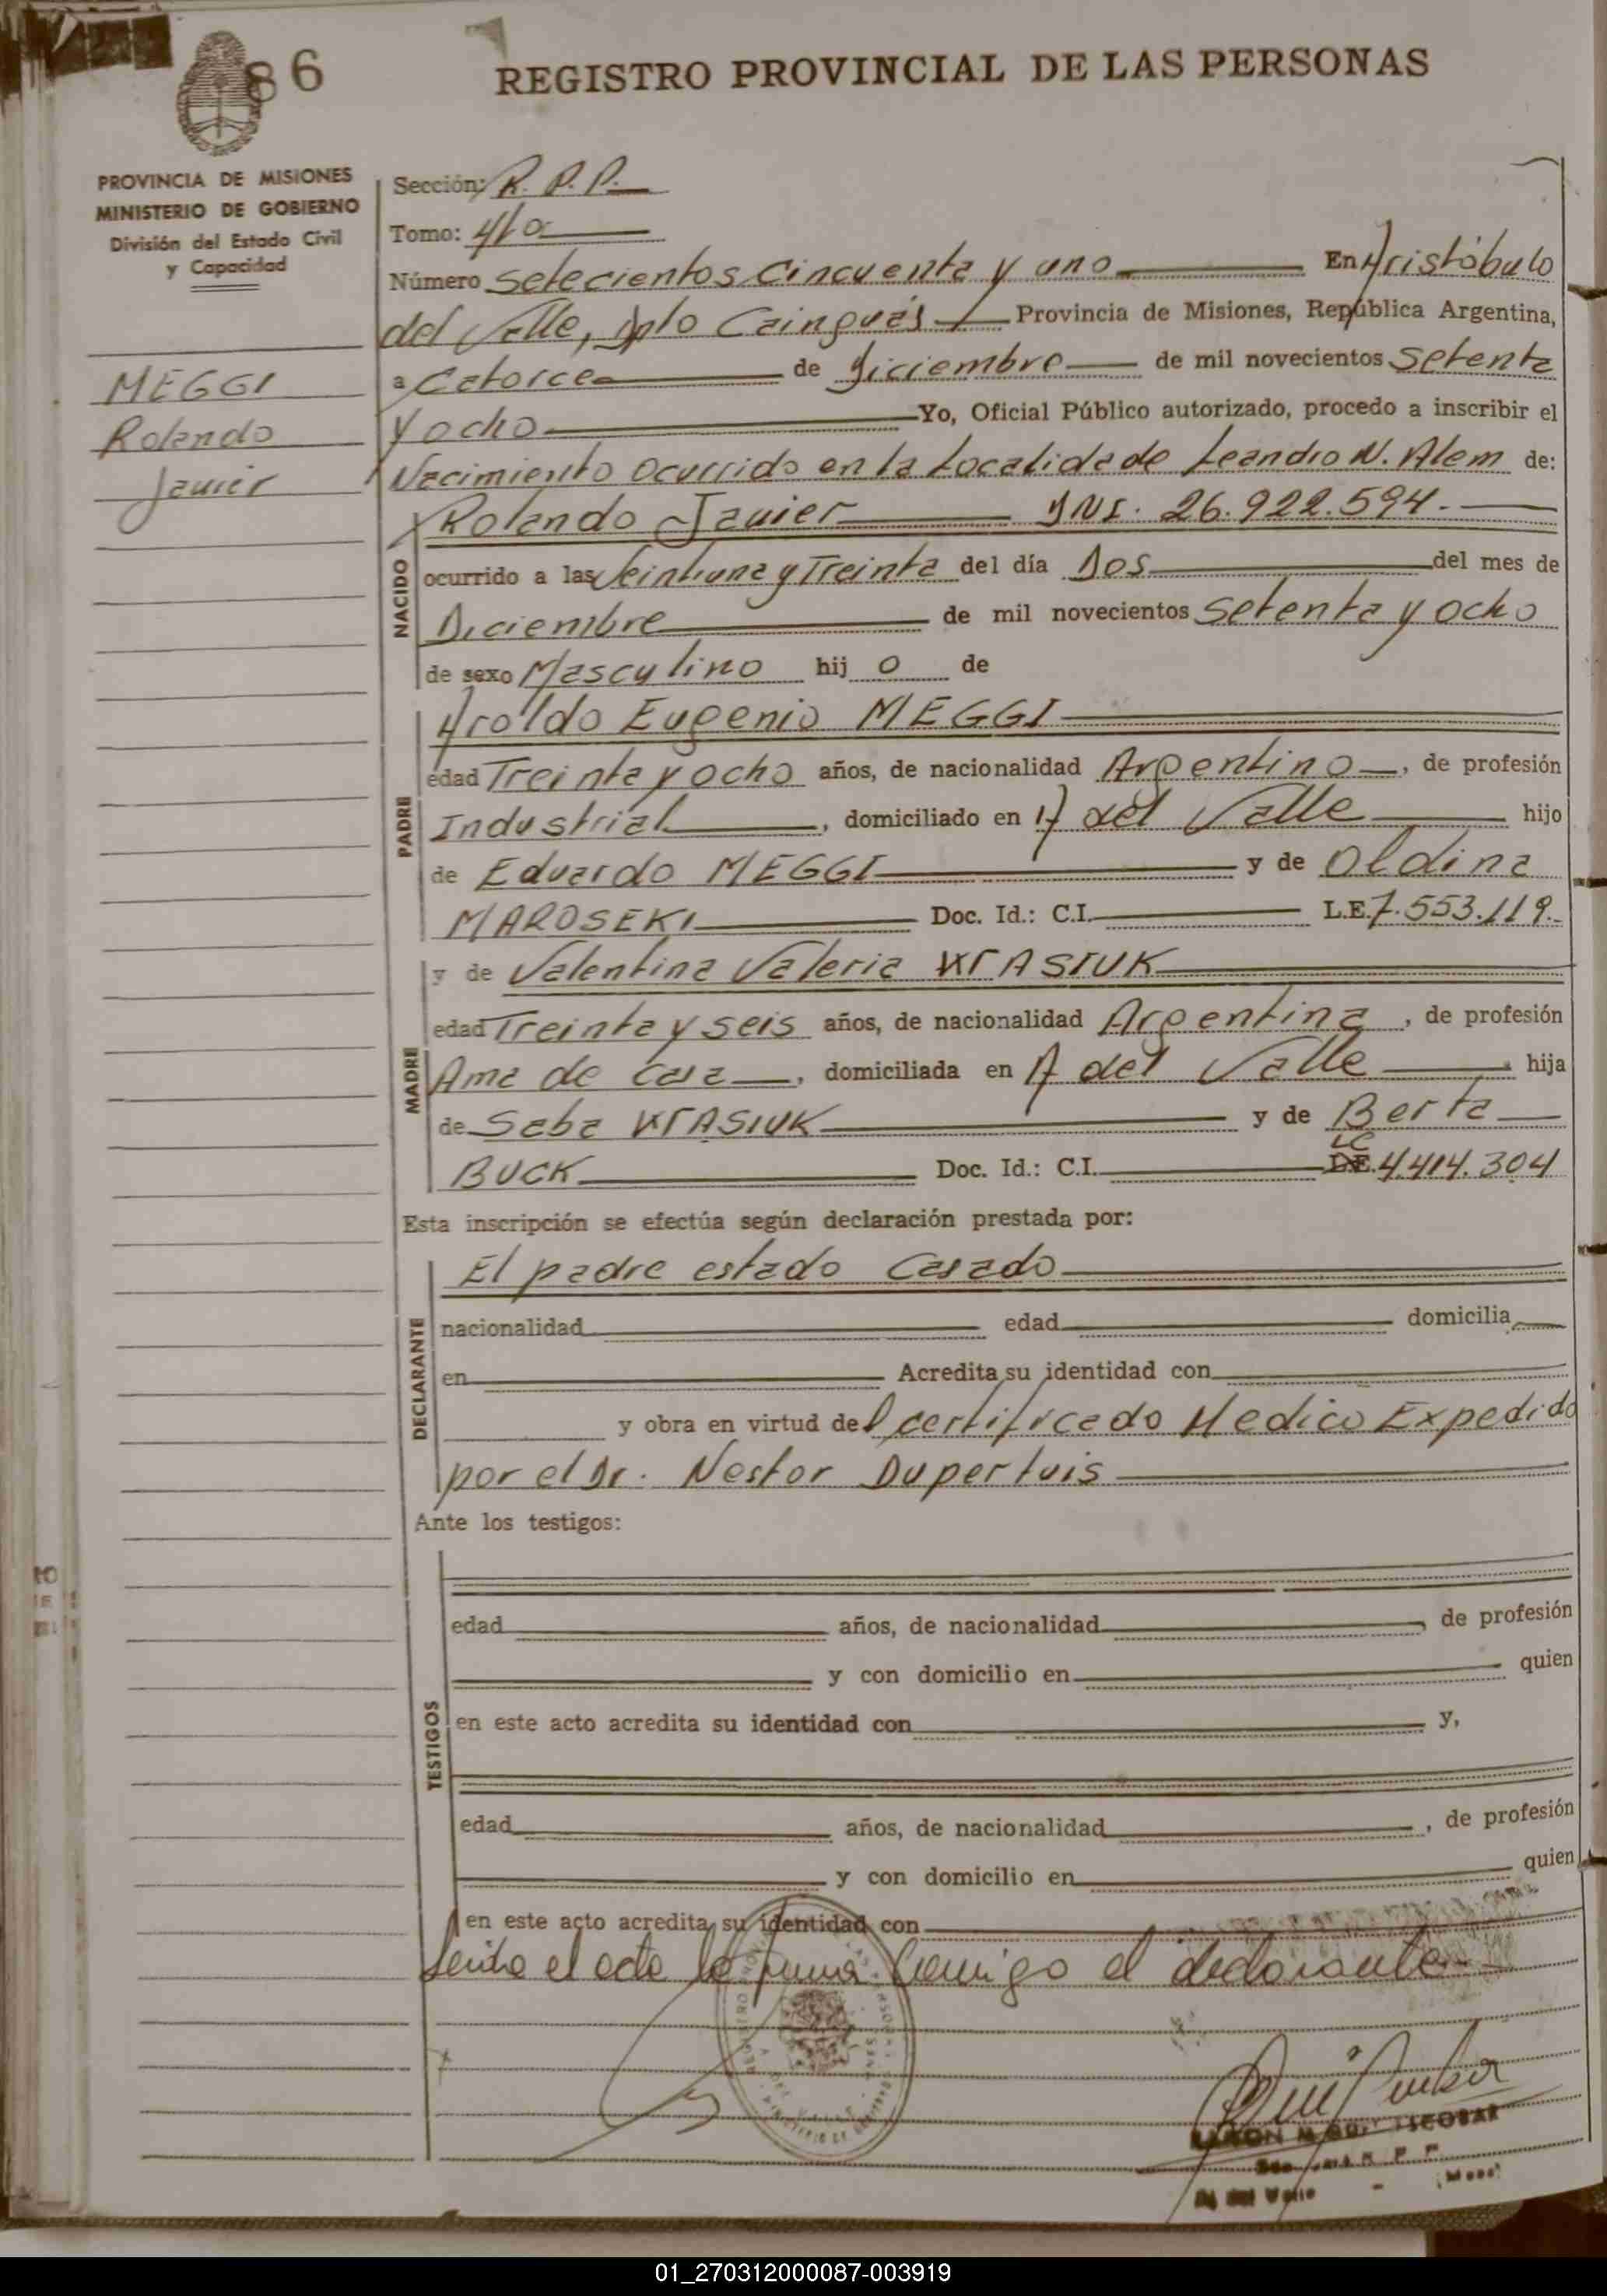 86
REGISTRO PROVINCIAL DE LAS PERSONAS
PROVINCIA DE MISIONES
MINISTERIO DE GOBIERNO
División del Estado Civil
y Capacidad
MEGGI
Rolando
Javier
Sección: R. P. P.
Tomo: 4to
Número setecientos cincuenta y uno En Aristóbulo
del Valle, Dpto Cainguás Provincia de Misiones, República Argentina,
a Catorce de Diciembre de mil novecientos setenta
y ocho Yo, Oficial Público autorizado, procedo a inscribir el
Nacimiento ocurrido en la Localidad de Leandro N. Alem de:
NACIDO
Rolando Javier DNI. 26.922.594.
ocurrido a las Veintiuna y Treinta del día Dos del mes de
Diciembre de mil novecientos setenta y ocho
de sexo Masculino hijo de
PADRE
Aroldo Eugenio MEGGI
edad Treinta y ocho años, de nacionalidad Argentino, de profesión
Industrial, domiciliado en A del Valle hijo
de Eduardo MEGGI y de Oldina
MAROSEKI Doc. Id.: C.I. L.E. 7.553.119.
MADRE
y de Valentina Valeria KRASIUK
edad Treinta y seis años, de nacionalidad Argentina, de profesión
Ama de casa, domiciliada en A del Valle hija
de Saba KRASIUK y de Berta
BUCK Doc. Id.: C.I. LC 4.414.304
Esta inscripción se efectúa según declaración prestada por:
DECLARANTE
El padre estado Casado
nacionalidad edad domicilia
en Acredita su identidad con
y obra en virtud del certificado Medico Expedido
por el Dr. Nestor Dupertuis
Ante los testigos:
TESTIGOS
edad años, de nacionalidad , de profesión
y con domicilio en quien
en este acto acredita su identidad con y,
edad años, de nacionalidad , de profesión
y con domicilio en quien
en este acto acredita su identidad con
Leida el acta la firma conmigo el declarante
RAMON ESCOBAR
del Valle
01_270312000087-003919